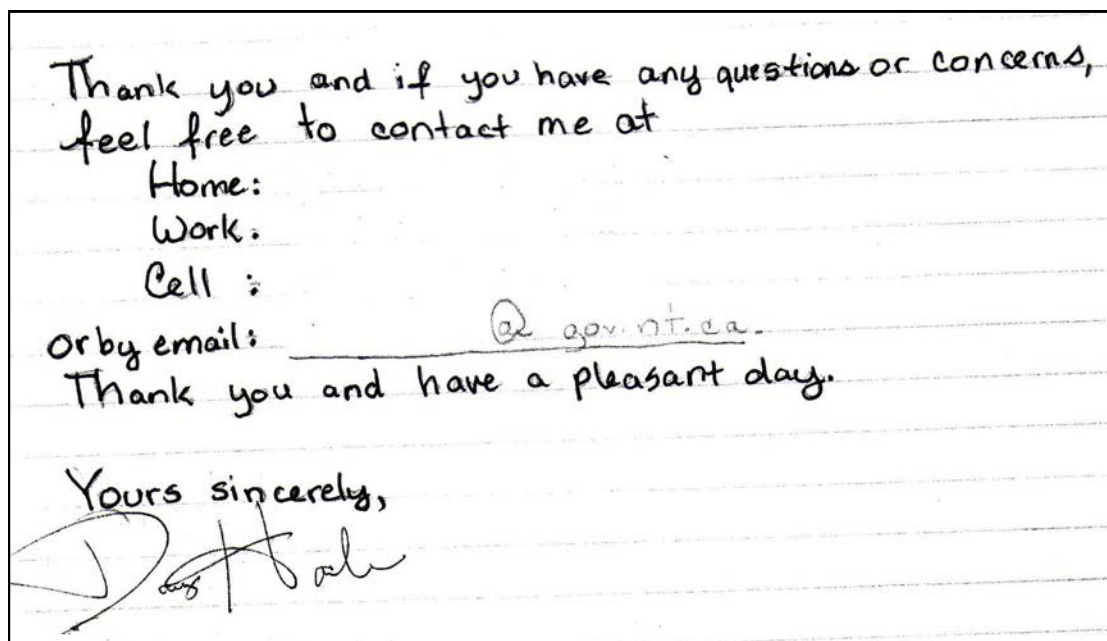 Thank you and if you have any questions or concerns,
feel free to contact me at
Home:
Work:
Cell :
or by email: @ gov.nt.ca.
Thank you and have a pleasant day.
Yours sincerely,